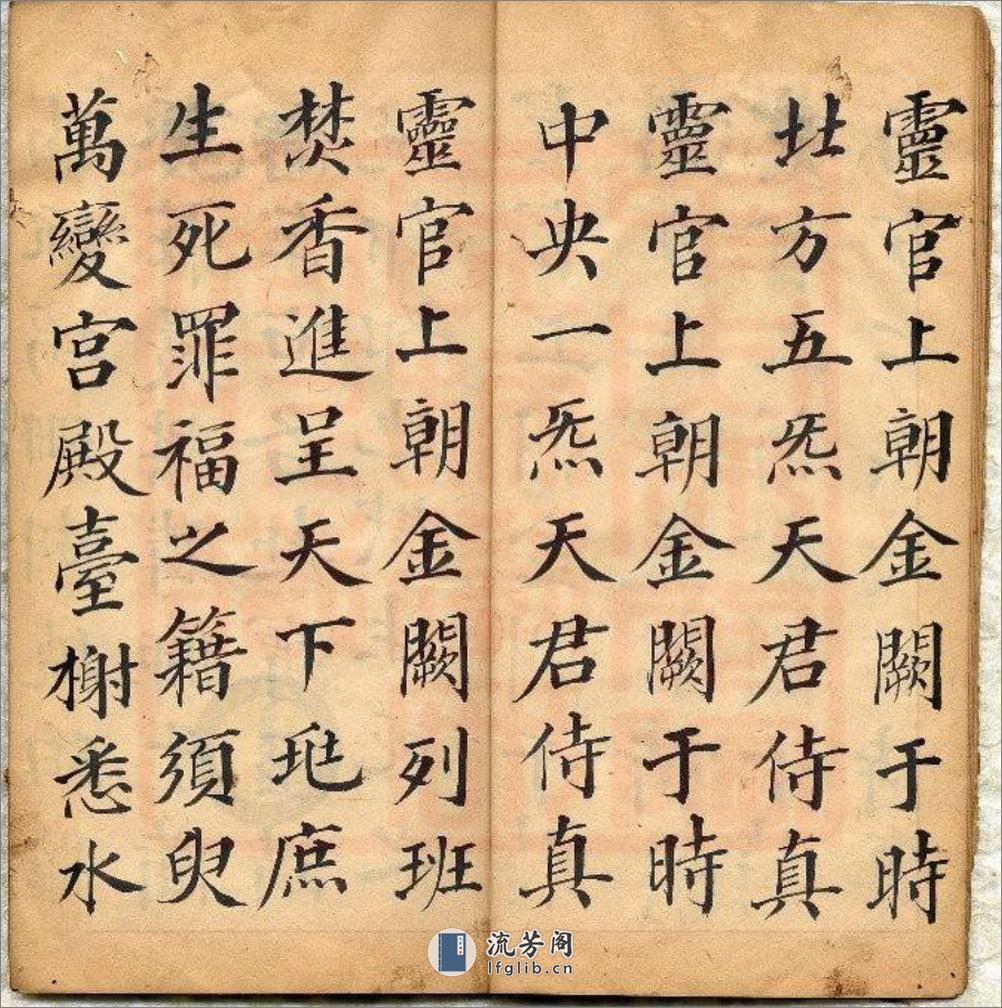 靈官上朝金闕于時
北方五炁天君侍真
靈官上朝金闕于時
中央一炁天君侍真
靈官上朝金闕列班
焚香進呈天下地庶
生死罪福之籍須臾
萬變宮殿臺榭悉水
流芳阁
lfglib.cn